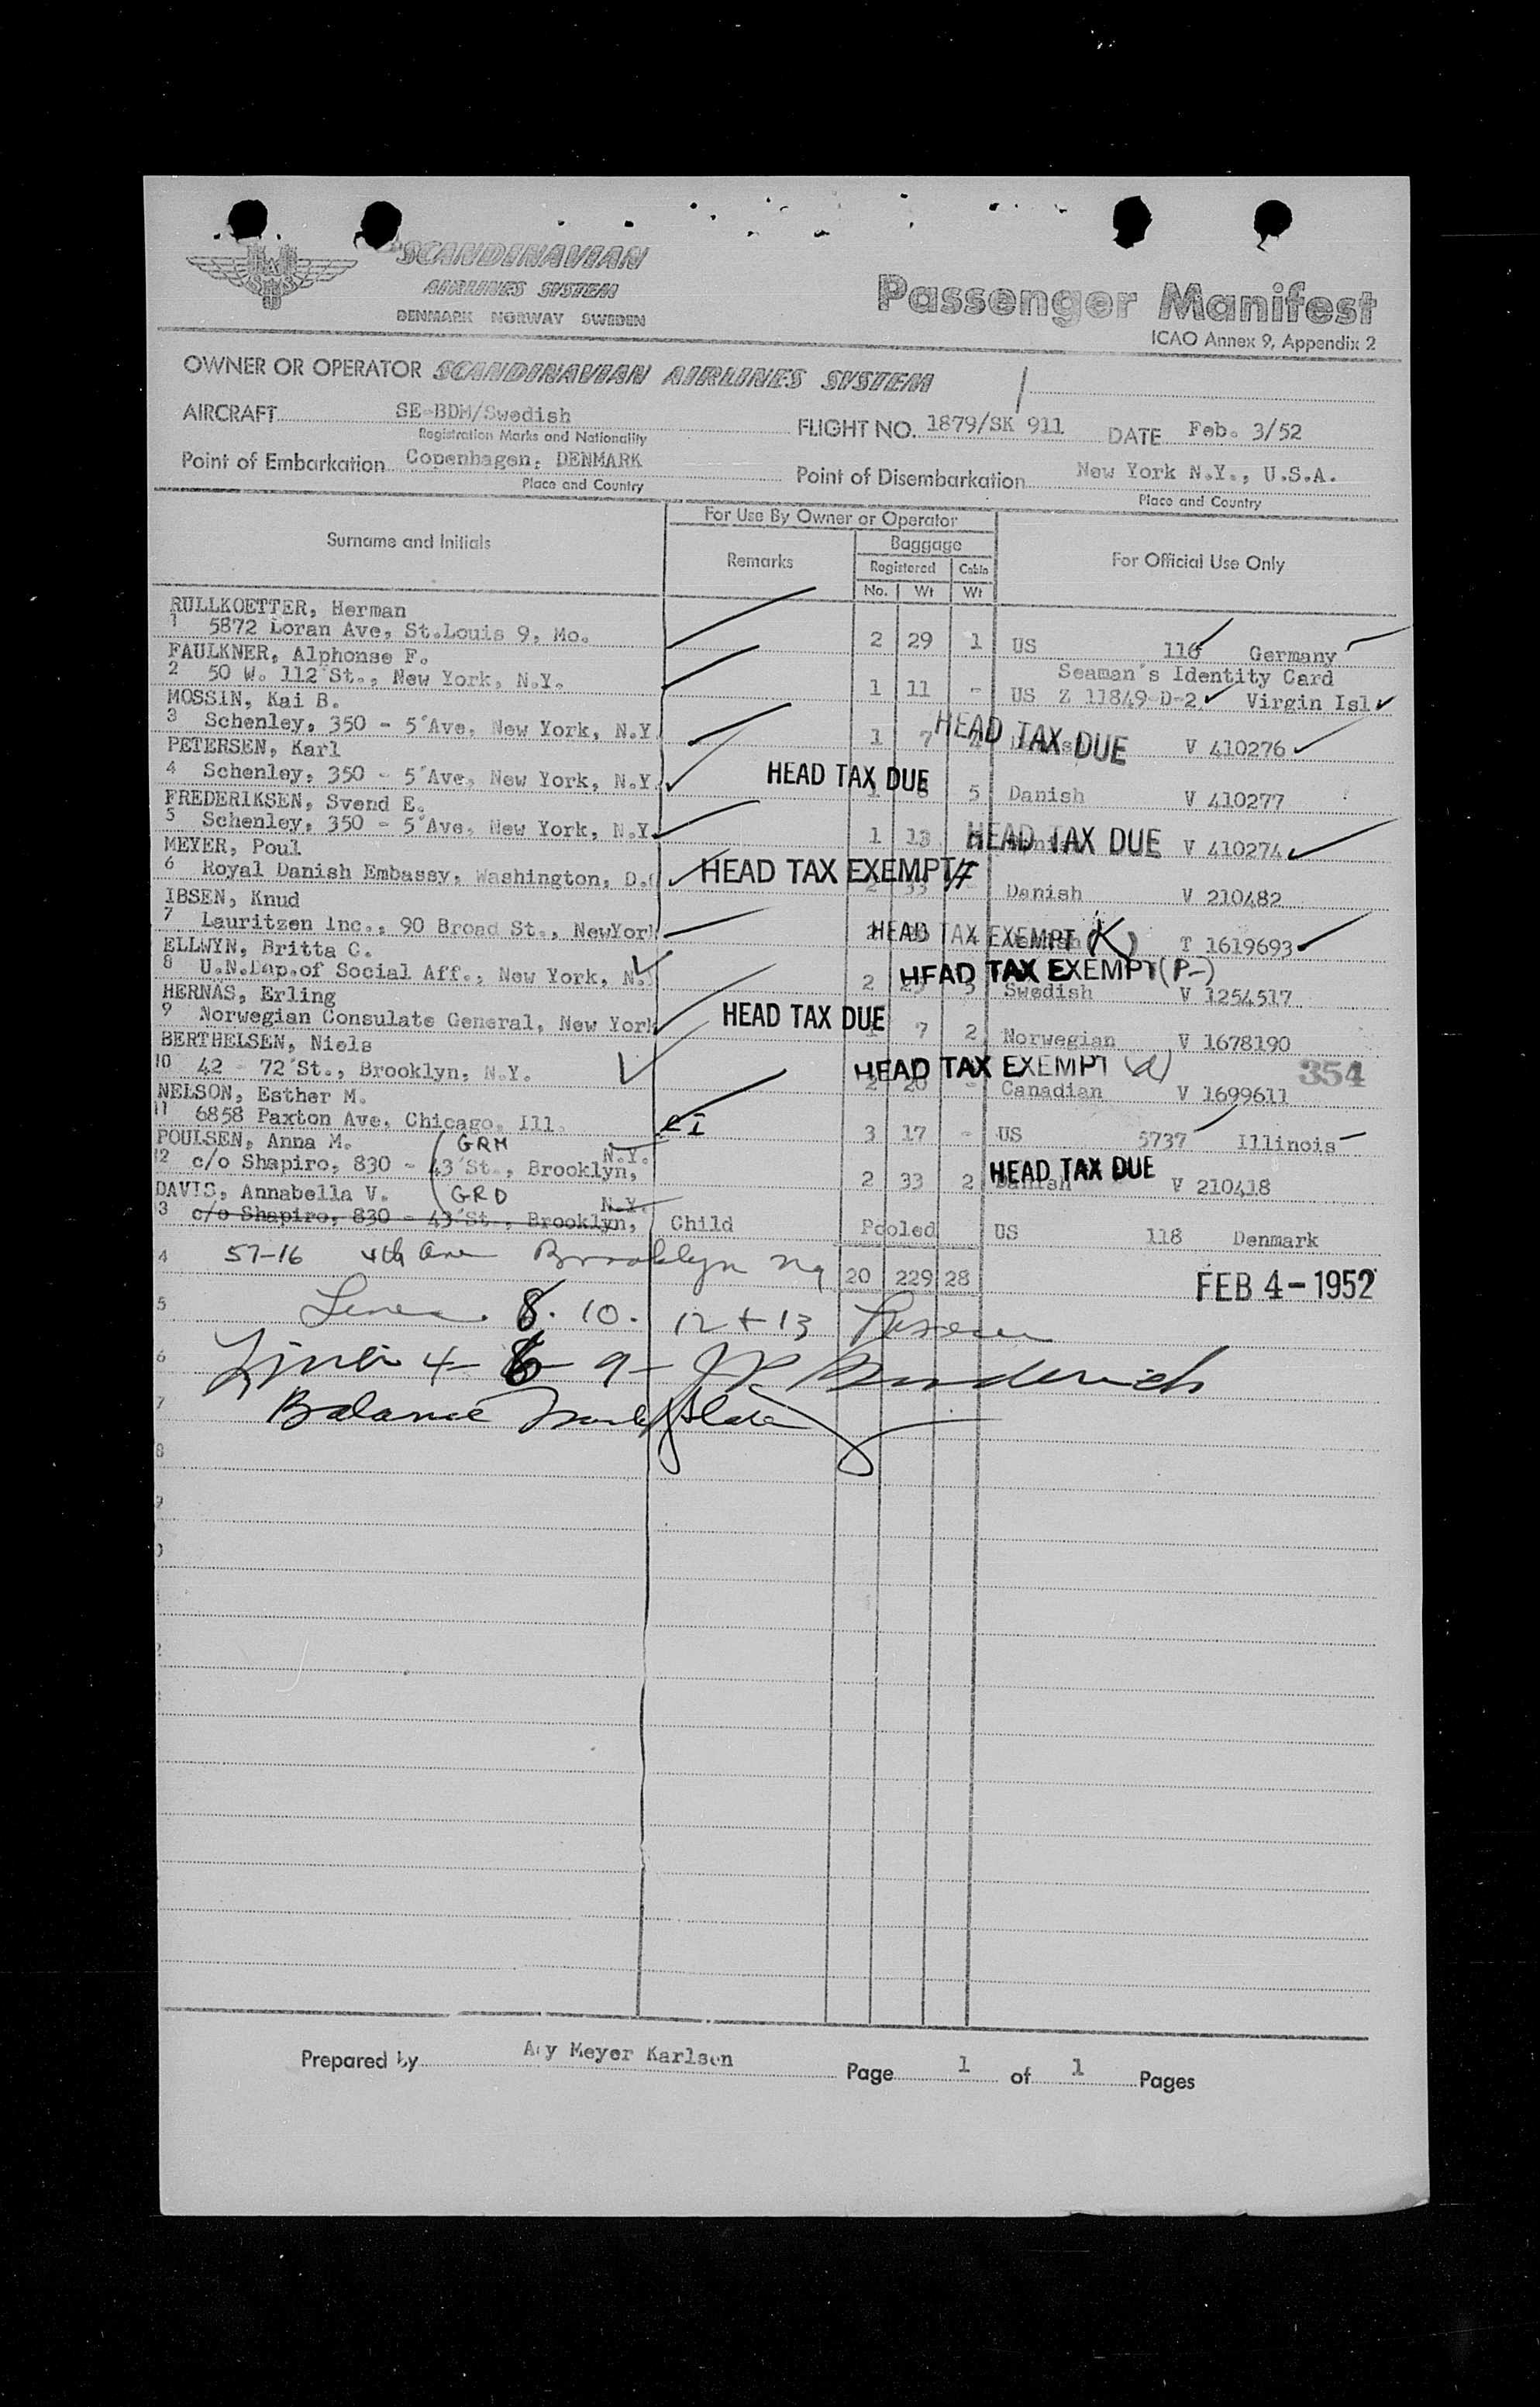 SCANDINAVIAN
AIRLINES SYSTEM
DENMARK NORWAY SWEDEN
Passenger Manifest
ICAO Annex 9, Appendix 2
OWNER OR OPERATOR SCANDINAVIAN AIRLINES SYSTEM
AIRCRAFT SE-BDM/Swedish FLIGHT NO. 1879/SK 911 DATE Feb. 3/52
Registration Marks and Nationality
Point of Embarkation Copenhagen, DENMARK Point of Disembarkation New York N.Y., U.S.A.
Place and Country Place and Country
For Use By Owner or Operator
Surname and Initials Remarks Baggage For Official Use Only
Registered Cabin
No. Wt Wt
RULLKOETTER, Herman
1 5872 Loran Ave, St.Louis 9, Mo. 2 29 1 US 116 Germany
FAULKNER, Alphonse F. Seaman's Identity Card
2 50 W. 112'St., New York, N.Y. 1 11 - US Z 11849-D-2 Virgin Isl
MOSSIN, Kai B.
3 Schenley, 350 - 5'Ave, New York, N.Y. 1 7 HEAD TAX DUE V 410276
PETERSEN, Karl
4 Schenley, 350 - 5'Ave, New York, N.Y. HEAD TAX DUE 5 Danish V 410277
FREDERIKSEN, Svend E.
5 Schenley, 350 - 5'Ave, New York, N.Y. 1 13 HEAD TAX DUE V 410274
MEYER, Poul
6 Royal Danish Embassy, Washington, D. HEAD TAX EXEMPT 2 33 - Danish V 210482
IBSEN, Knud
7 Lauritzen Inc., 90 Broad St., NewYork HEAD TAX EXEMPT (K) T 1619693
ELLWYN, Britta C.
8 U.N.Dap.of Social Aff., New York, N. 2 HEAD TAX EXEMPT (P-) Swedish V 1254517
HERNÄS, Erling
9 Norwegian Consulate General, New York HEAD TAX DUE 7 2 Norwegian V 1678190
BERTHELSEN, Niels
10 42 - 72'St., Brooklyn, N.Y. HEAD TAX EXEMPT 2 20 - Canadian V 1699611 354
NELSON, Esther M.
11 6858 Paxton Ave, Chicago, Ill. I 3 17 - US 5737 Illinois
POULSEN, Anna M. GRM N.Y.
12 c/o Shapiro, 830 - 43'St., Brooklyn, 2 33 2 HEAD TAX DUE Danish V 210418
DAVIS, Annabella V. GRD N.Y.
13 c/o Shapiro, 830 - 43'St., Brooklyn, Child Pooled US 118 Denmark
4 57-16 4th Ave Brooklyn NY 20 229 28 FEB 4-1952
5 Lines 8. 10. 12 + 13
6 Lines 4- 6- 9-
7 Balance
8
9
Prepared by Meyer Karlsen Page 1 of 1 Pages